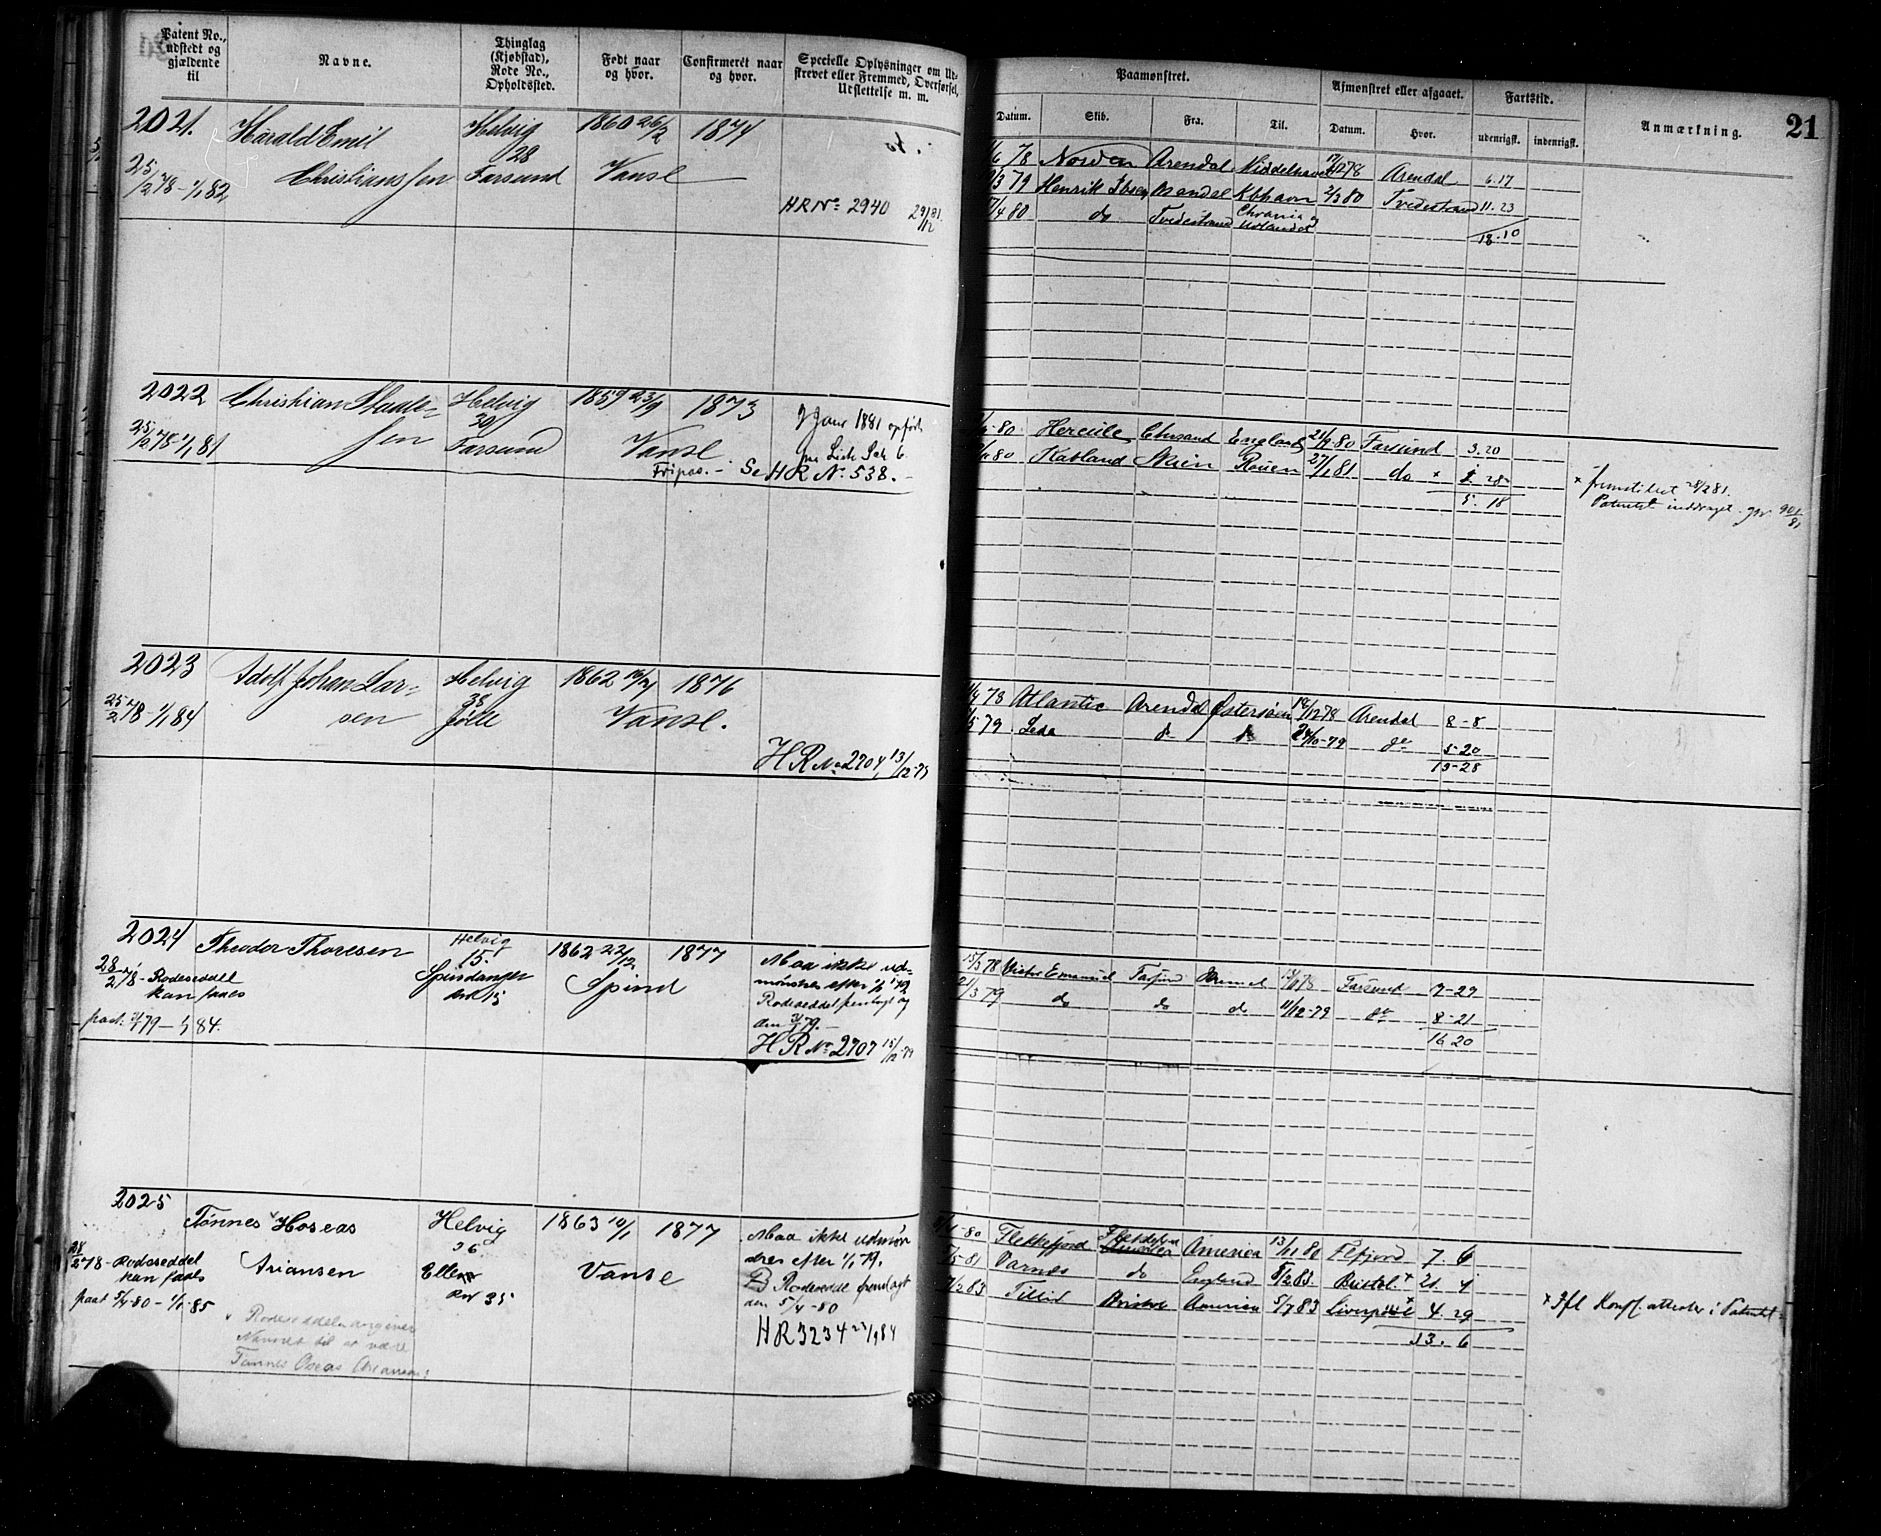 Patent No., udstedt og gjældende til
Navne.
Thinglag (Kjøbstad), Rode No., Opholdssted.
Født naar og hvor.
Confirmeret naar og hvor.
Specielle Oplysninger om Udstrevet eller Fremmed, Overførsel, Udslettelse m. m.
Paamønstret.
Afmønstret eller afgaaet.
Fartstid.
Anmærkning.
21
Datum. Skib. Fra. Til. Datum. Hvor. udenrigsk. indenrigsk.
2021. Harald Emil Helvig 1860 26/2 1874
28
25/2 78 - 1/1 82 Christianssen Farsund Vanse
HR No 2940 29/12 81
78 Norden Arendal Middelhavet 78 Arendal 6.17
79 Henrik Ibsen Kbhavn 2/3 80 Tvedestrand 11.23
/4 80 do Tvedestrand Chrania og Udlandet
18.10
2022 Christian Helvig 1859 23/9 1873
30
25/2 78 - 1/1 81 sen Farsund Vanse
Fripas. - Se HR No. 538.
80 Hercule Chrsand England 80 Farsund 3.20
80 Skien Rouen 27/1 81 do x 28
5. 18
x fremstillet 28/2 81.
Patentet inddraget
2023 Adolf Johan Lar- Helvig 1862 1876
38
25/2 78 - 1/1 84 sen Jølle Vanse.
HR No 2704 13/12-79
78 Atlantic Arendal Østersøen 78 Arendal 8-8
/5 79 Leda do do 24/10-79 do 5-20
13-28
2024 Theodor Thoresen Helvig 1862 22/12 1877
15.
28/2 78 - Rodeseddel Spindanger Spind
kan faaes
79 - 1/1 84.
Maa ikke ud-
mønstres efter 1/1 79
Rodeseddel fremlagt og
den
HR No 2707 15/12-79
15/3 78 Victor Emanuel Farsund 78 Farsund 7-29
21/3 79 do do do 11/12-79 do 8-21
16 20
2025
Tønnes x Hoseas Helvig 1863 10/1 1877
36.
28/2 78 - Rodeseddel Ariansen Vanse
kan faaes
paat. 5/4-80 - 1/1-85 35
Maa ikke udmøn
stres efter 1/1 79.
Rodeseddel fremlagt
den 5/4-80
HR 3234
x Rodeseddelen angiver
Navnet til at være
Tønnes Oseas Ariansen.
80 Flekkefjord America 13/11 80 Flfjord 7. 6
/5 81 Varnæs do England 8/2 83 Bristol x 21. 4
/2 83 Tillid Bristol America 5/7 83 Liverpool x 4. 29
33. 6
x Ifl Konsl. attester i Patentet